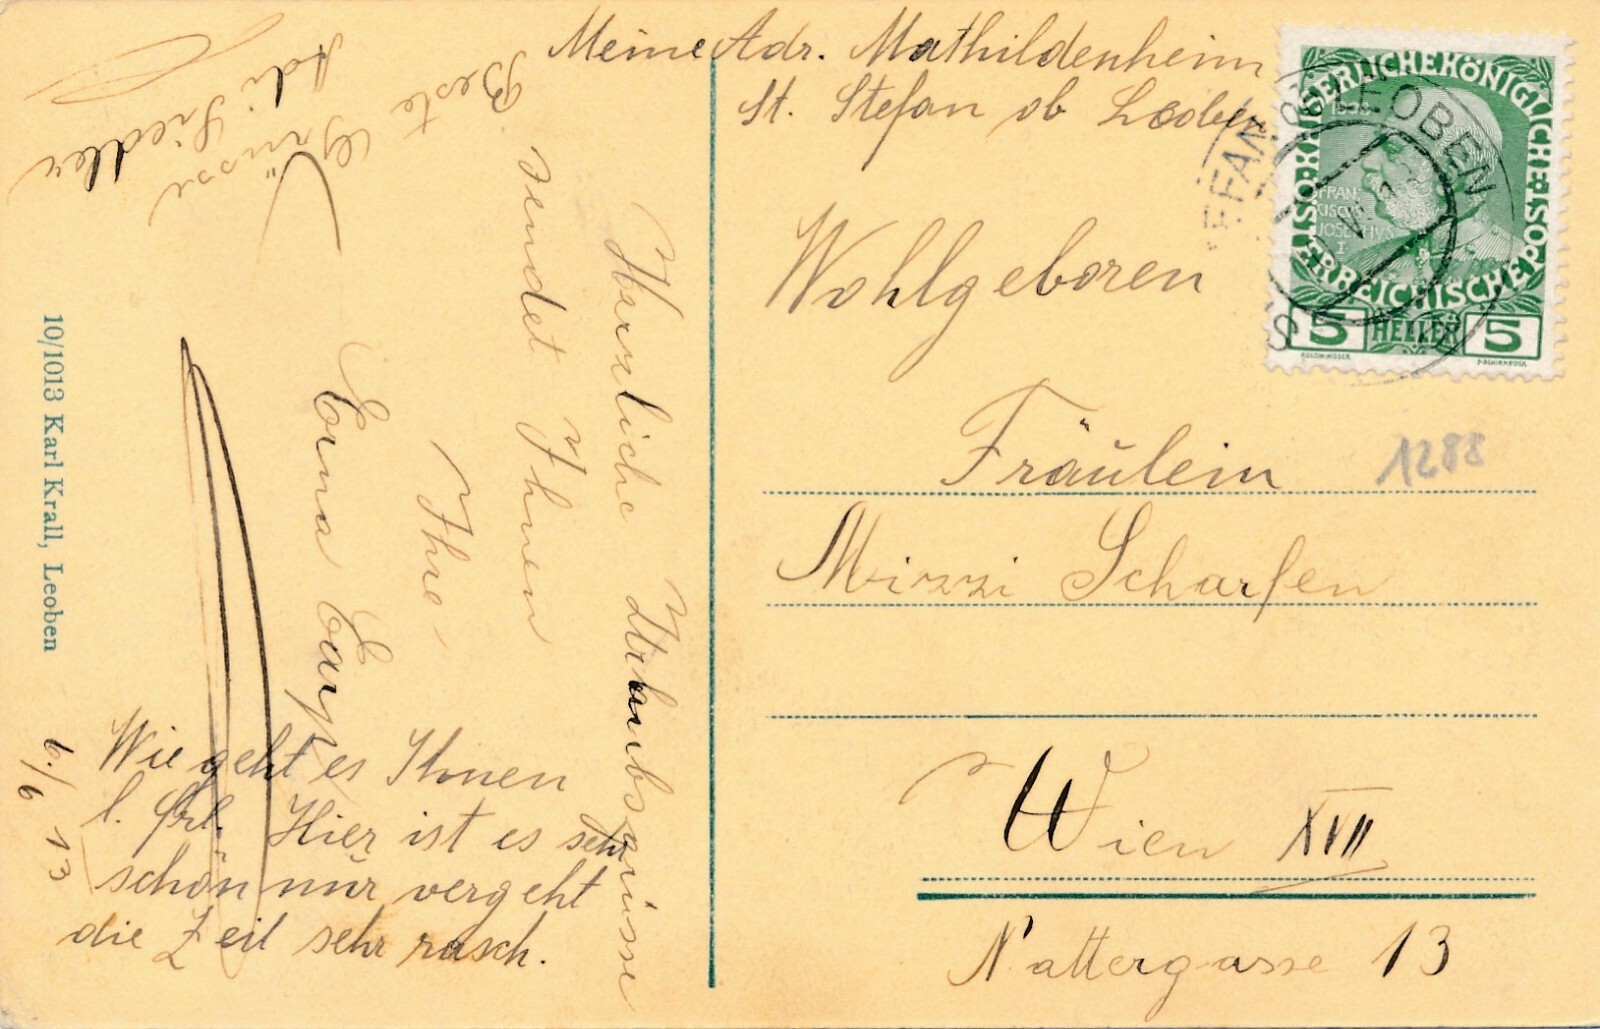 Meine Adr. Mathildenheim
St. Stefan ob Leoben
Wohlgeboren
Fräulein
Mizzi Scharfen
Wien XVII
Nattergasse 13
1288
Herzliche Urlaubsgrüsse
sendet Ihnen
Ihre
Erna
Beste
Grüsse
Adi Friedler
Wie geht es Ihnen
l. Frl. Hier ist es sehr
schön nur vergeht
die Zeit sehr rasch.
6./6 13
10/1013 Karl Krall, Leoben
KAISERLICHE KÖNIGLICHE
ÖSTERREICHISCHE POST
FRAN-
CISC
JOSEPHVS
I
5 HELLER 5
EFAN OB LEOBEN